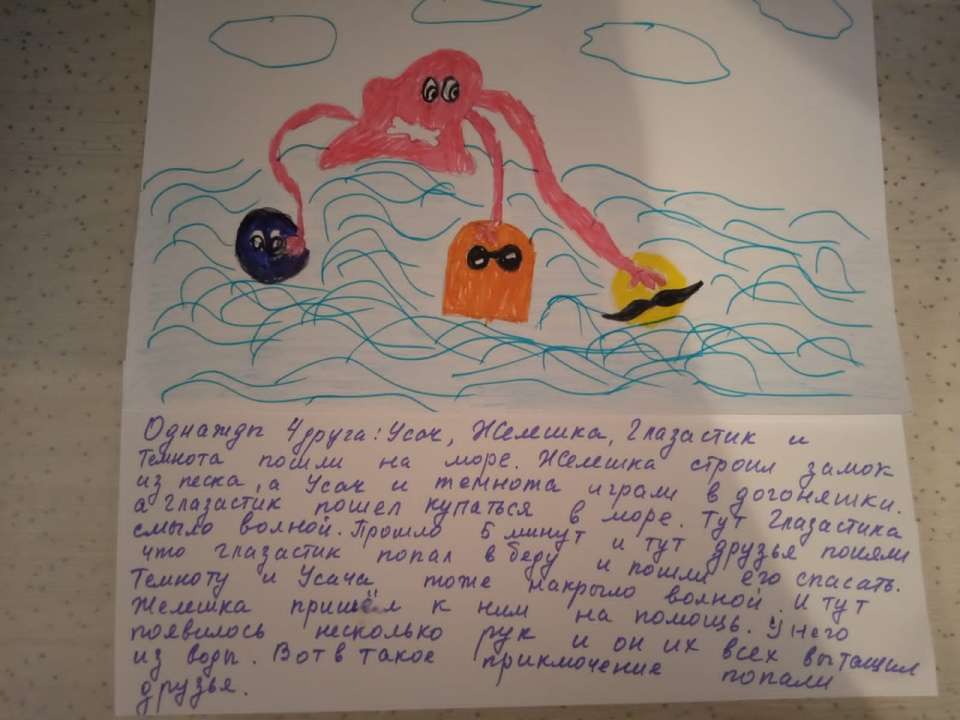 Однажды 4 друга: Усач, Желешка, Глазастик и
Темнота пошли на море. Желешка строил замок
из песка, а Усач и темнота играли в догоняшки.
а Глазастик пошел купаться в море. Тут Глазастика
смыло волной. Прошло 5 минут и тут друзья поняли
что глазастик попал в беду и пошли его спасать.
Темноту и Усача тоже накрыло волной. И тут
Желешка пришёл к ним на помощь. У него
появилось несколько рук и он их всех вытащил
из воды. Вот в такое приключение попали
друзья.